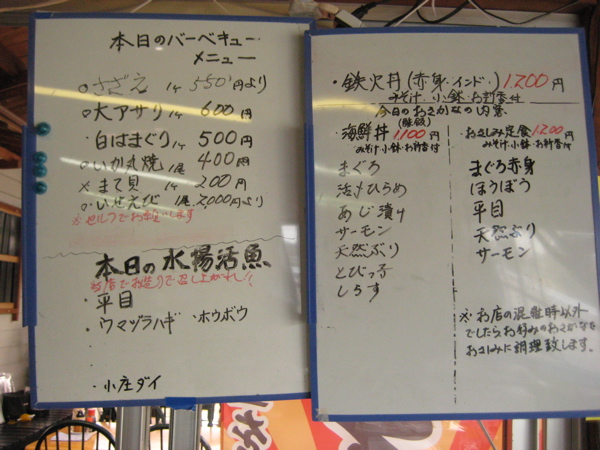 本日のバーベキュー
メニュー
○さざえ 1ケ 550円より
○大アサリ 1ケ 600円
・白はまぐり 1ケ 500円
○いか丸焼 1尾 400円
×まて貝 1ケ 200円
○いせえび 1尾 2,000円より
※セルフでお願いします
本日の水揚活魚
当店でお造りで召し上がれ!!
・平目
・ウマヅラハギ ・ホウボウ
・小庄ダイ
・鉄火丼(赤身・インド・)1,200円
みそ汁、小鉢・お新香付
今日のおさかなの内容
海鮮丼 1,100円
みそ汁・小鉢・お新香付
まぐろ
活〆ひらめ
あじ漬け
サーモン
天然ぶり
とびっ子
しらす
・おさしみ定食 1,200円
みそ汁・小鉢・お新香付
まぐろ赤身
ほうぼう
平目
天然ぶり
サーモン
※お店の混雑時以外
でしたらお好みのおさかなを
おさしみに調理致します。